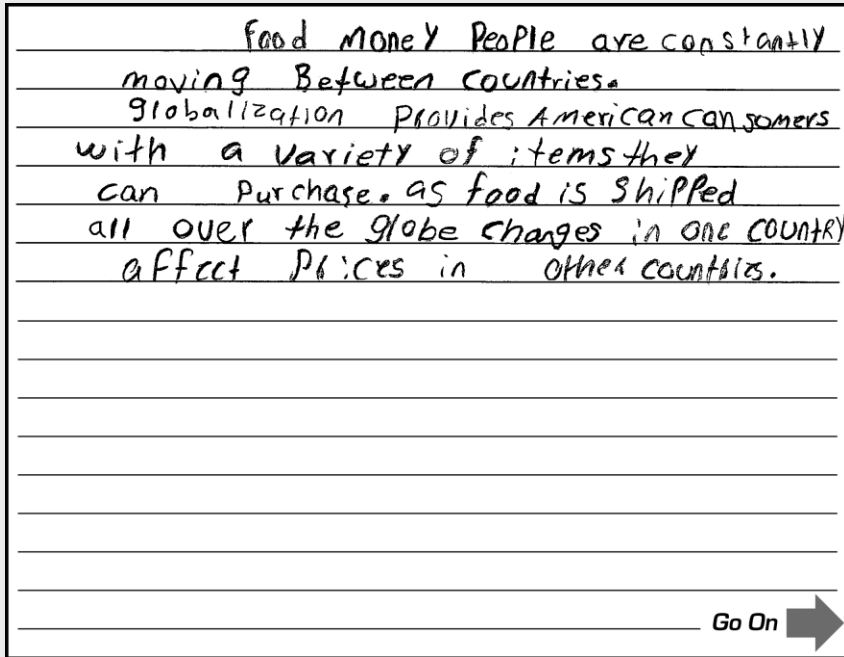 food money People are constantly
moving Between countries.
globalization Provides American cansomers
with a variety of items they
can Purchase. as food is Shipped
all over the globe changes in one country
affect Prices in other countries.
Go On